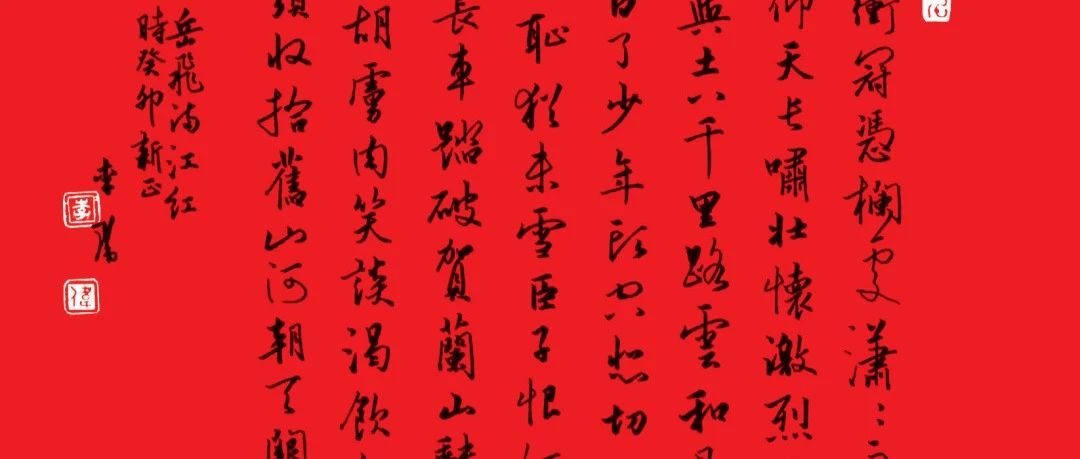 衝冠憑欄處瀟〻
仰天長嘯壯懷激烈
與土八千里路雲和
了少年頭空悲切
恥猶未雪臣子恨
長車踏破賀蘭山
胡虜肉笑談渴飲
收拾舊山河朝天闕
岳飛满江红
時癸卯新正
李
李
偉